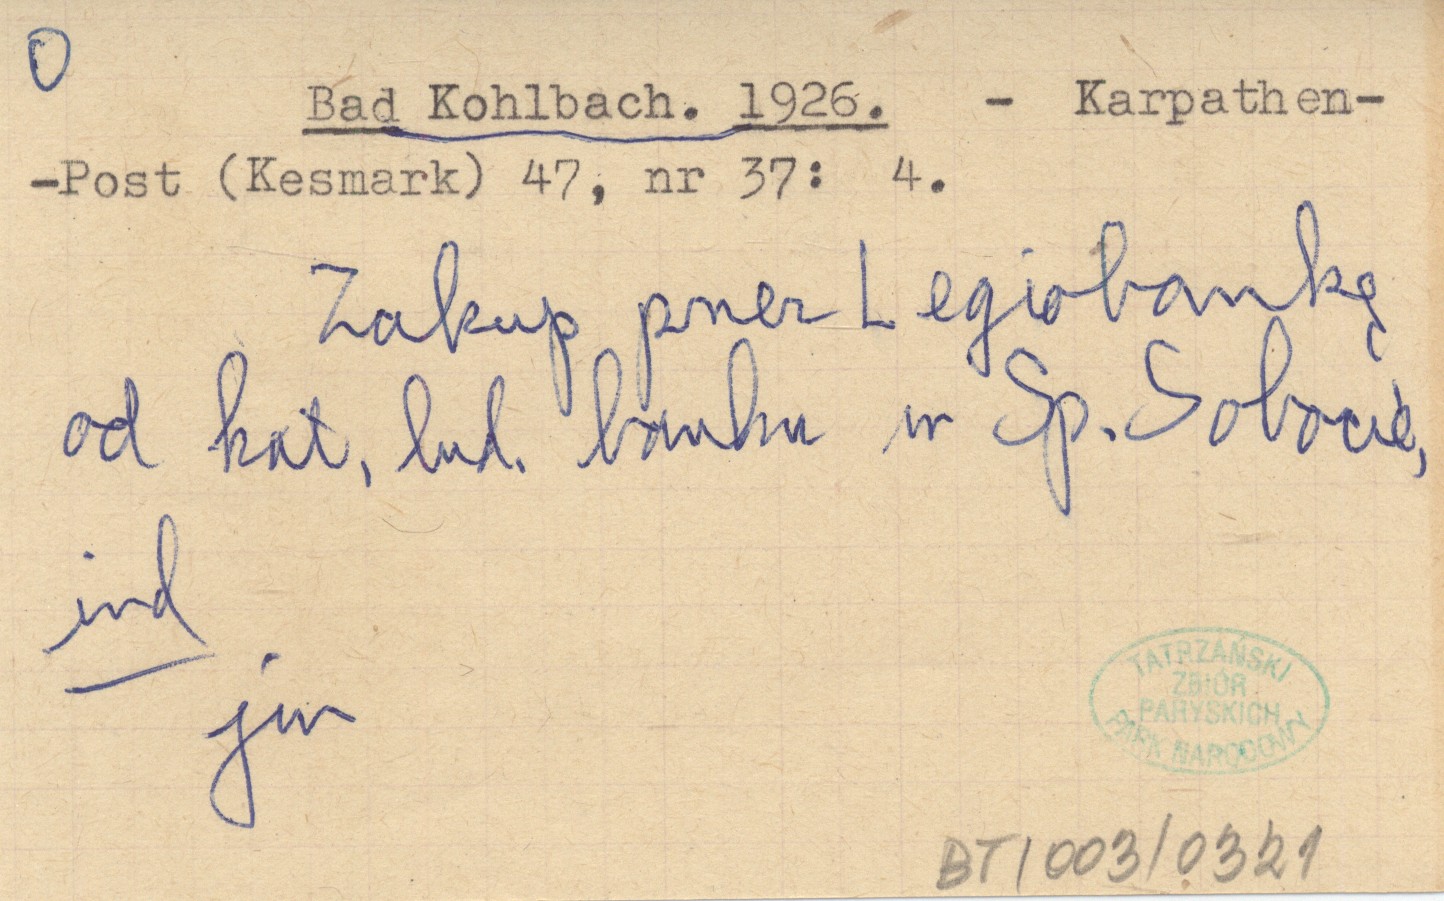 O
Bad Kohlbach. 1926. - Karpathen-
-Post (Kesmark) 47, nr 37: 4.
Zakup przez Legiobankę
od kat. lud. banku w Sp. Sobocie,
ind
jw
TATRZAŃSKI
ZBIÓR
PARYSKICH
PARK NARODOWY
BT/003/0321